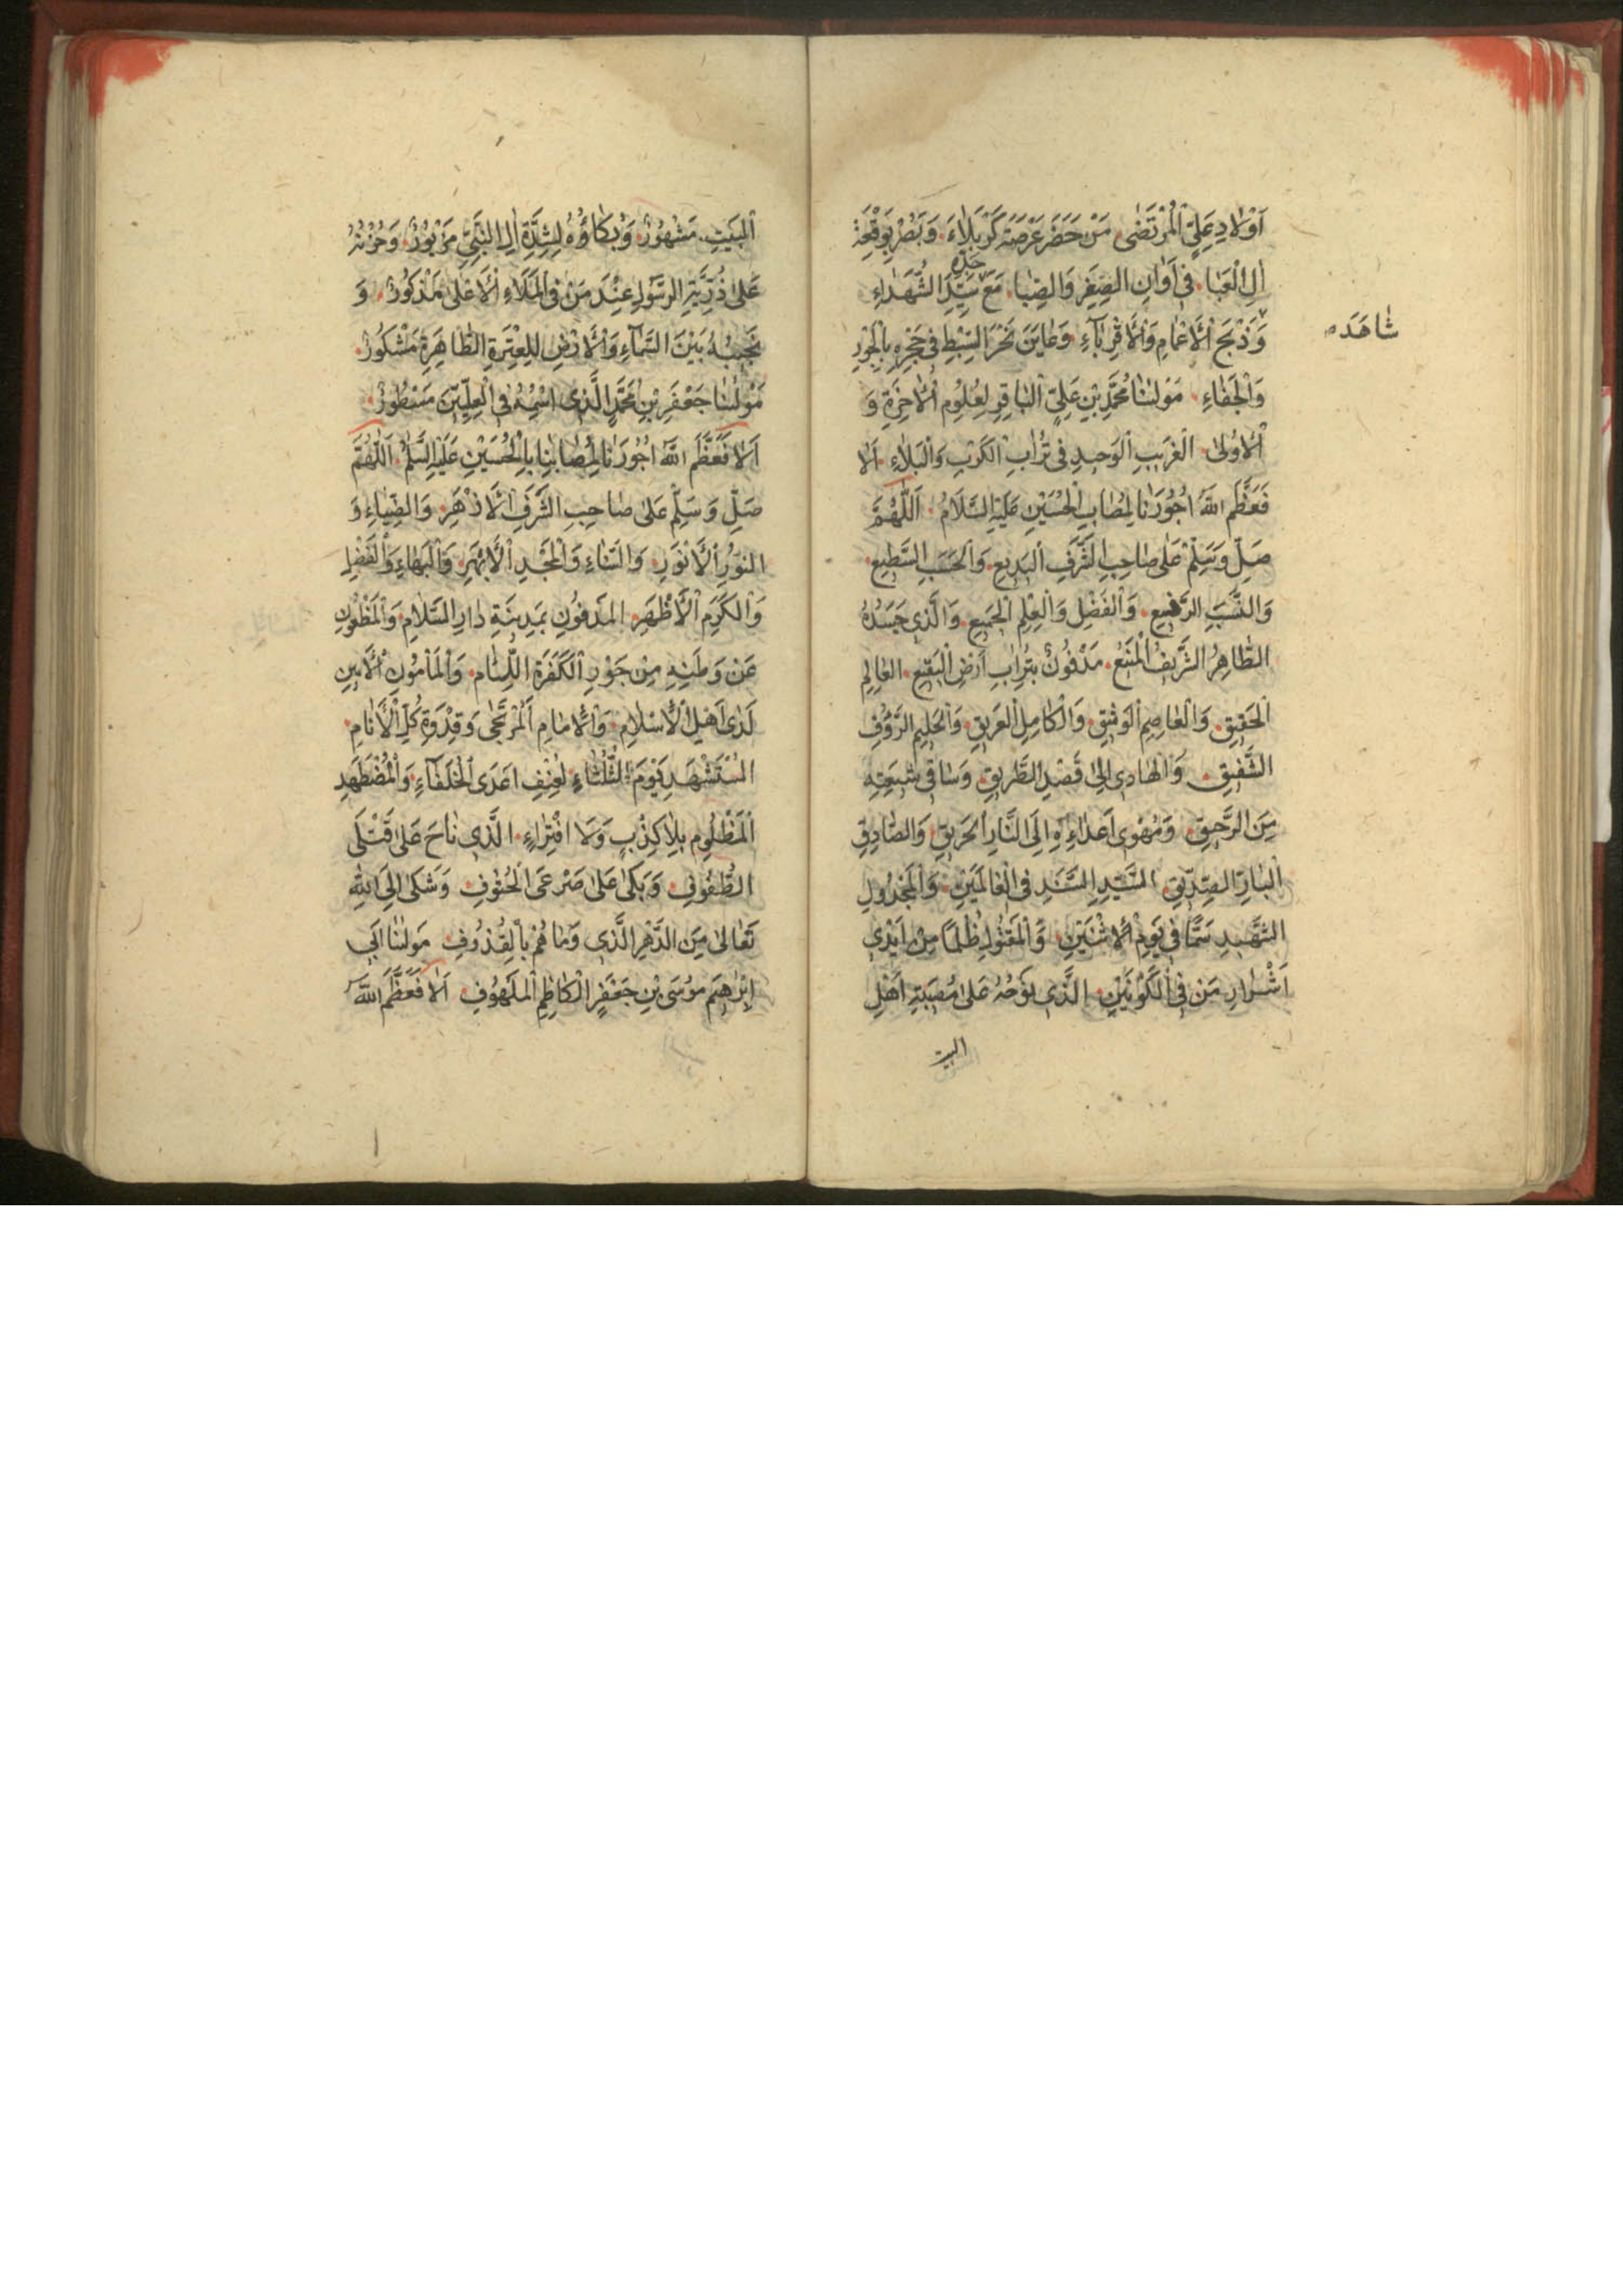 اَوْلادِ عَلِيٍّ الْمُرْتَضٰى مَنْ حَضَرَ عَرْصَةَ كَرْبَلاءَ وَبَصُرَ بِوَقْعَةِ
جَدِّهِ
اٰلِ الْعَبا فى اَوانِ الصِّغَرِ وَالصِّبا مَعَ سَيِّدِ الشُّهَداءِ
شاهَدَ
وَ ذَبْحَ الْاَعْمامِ وَالْاَقْرِبآءِ وَعايَنَ نَحْرَ السِّبْطِ فى حَجْرِهِ بِالْجَوْرِ
وَالْجَفاءِ مَوْلٰنا مُحَمَّدِ بْنِ عَلِيٍّ الْباقِرِ لِعُلُومِ الْاٰخِرَةِ وَ
الْاُولٰى الْغَريبِ الْوَحيدِ فى تُرابِ الْكَرْبِ وَالْبَلاءِ اَلا
فَعَظَّمَ اللّٰهُ اُجُورَنا لِمُصابِ الْحُسَيْنِ عَلَيْهِ السَّلامُ اَللّٰهُمَّ
صَلِّ وَسَلِّمْ عَلٰى صاحِبِ الشَّرَفِ الْبَديعِ وَالْحَسَبِ السَّطيعِ
وَالنَّسَبِ الرَّفيعِ وَالْفَضْلِ وَالْعِلْمِ الْجَميعِ وَالَّذى جَسَدُهُ
الطّاهِرُ الشَّريفُ الْمَنيعُ مَدْفُونٌ بِتُرابِ اَرْضِ الْبَقيعِ الْعالِمِ
الْحَقيقِ وَالْعاصِمِ الْوَثيقِ وَالْكامِلِ الْعَريقِ وَالْحَليمِ الرَّؤُفِ
الشَّفيقِ وَالْهادى اِلٰى قَصْدِ الطَّريقِ وَساقى شيعَتِهِ
مِنَ الرَّحيقِ وَمُهْوى اَعْداءِهِ اِلَى النّارِ الْحَريقِ وَالصّادِقِ
الْبارِّ الصِّدّيقِ السَّيِّدِ السَّنَدِ فى الْعالَمَيْنِ وَالْمَخْذُولِ
الشَّهيدِ سَمًّا فى يَوْمِ الْاِثْنَيْنِ وَالْمَقْتُولِ ظُلْمًا مِنْ اَيْدى
اَشْرارِ مَنْ فِى الْكَوْنَيْنِ الَّذى نَوْحُهُ عَلٰى مُصيبَةِ اَهْلِ
البيت
الْبَيْتِ مَشْهُورٌ وَبُكاؤُهُ لِشِدَّةِ اٰلِ النَّبِىِّ مَزْبُورٌ وَحُزْنُهُ
عَلٰى ذُرِّيَّةِ الرَّسُولِ عِنْدَ مَنْ فِى الْمَلَاءِ الْاَعْلٰى مَذْكُورٌ وَ
نَحيبُهُ بَيْنَ السَّمآءِ وَالْاَرْضِ لِلْعِتْرَةِ الطّاهِرَةِ مَشْكُورٌ
مَوْلٰنا جَعْفَرِ بْنِ مُحَمَّدٍ الَّذى اسْمُهُ فِى الْعِلِّيّينَ مَسْطُورٌ
اَلا فَعَظَّمَ اللّٰهُ اُجُورَنا لِمُصابِنا بِالْحُسَيْنِ عَلَيْهِ السَّلٰمُ اَللّٰهُمَّ
صَلِّ وَسَلِّمْ عَلٰى صاحِبِ الشَّرَفِ الْاَزْهَرِ وَالضِّياءِ وَ
النُّورِ الْاَنْوَرِ وَالسَّناءِ وَالْمَجْدِ الْاَبْهَرِ وَالْبَهاءِ وَالْفَضْلِ
وَالْكَرَمِ الْاَظْهَرِ الْمَدْفُونِ بِمَدينَةِ دارِ السَّلامِ وَالْمَظْعُونِ
عَنْ وَطَنِهِ مِنْ جَوْرِ الْكَفَرَةِ اللِّئامِ وَالْمَأْمُونِ الْاَمينِ
لَدٰى اَهْلِ الْاِسْلامِ وَالْاِمامِ الْمُرْتَجٰى وَقِدْوَةِ كُلِّ الْاَنامِ
الْمُسْتَشْهَدِ يَوْمَ الثُّلَثاءِ لِعُنْفِ اَعْدَى الْخُلَفآءِ وَالْمُضْطَهَدِ
الْمَظْلُومِ بِلا كِذْبٍ وَلَا افْتِراءٍ الَّذى ناحَ عَلٰى قَتْلَى
الطُّفُوفِ وَبَكٰى عَلٰى صَرْعَى الْحُتُوفِ وَشَكٰى اِلَى اللّٰهِ
تَعالٰى مِنَ الدَّهْرِ الَّذى رَماهُمْ بِالْقُذُوفِ مَوْلٰنا اَبى
اِبْرٰهيمَ مُوسَى بْنِ جَعْفَرٍ الْكاظِمِ الْمَلْهُوفِ اَلا فَعَظَّمَ اللّٰهُ